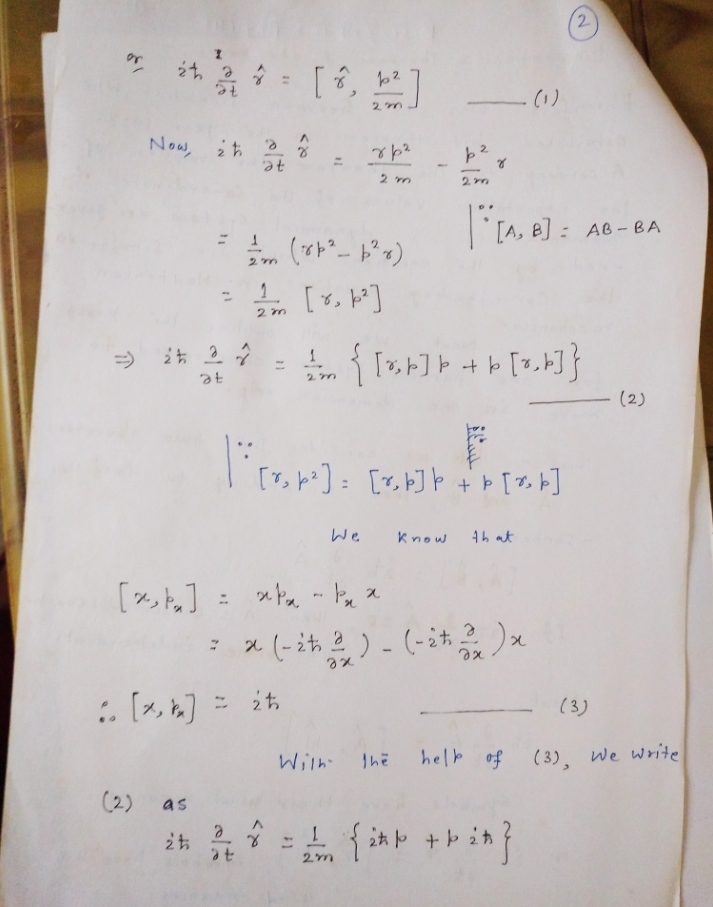 2
or iħ ∂/∂t r̂ = [r̂, p²/2m] —— (1)
Now, iħ ∂/∂t r̂ = rp²/2m - p²/2m r
| ∵ [A, B] = AB - BA
= 1/2m (rp² - p²r)
= 1/2m [r, p²]
⇒ iħ ∂/∂t r̂ = 1/2m { [r, p] p + p [r, p] }
—— (2)
| ∵ [r, p²] = [r, p] p + p [r, p]
We know that
[x, pₓ] = xpₓ - pₓ x
= x (-iħ ∂/∂x) - (-iħ ∂/∂x) x
∴ [x, pₓ] = iħ —— (3)
With the help of (3), We write
(2) as
iħ ∂/∂t r̂ = 1/2m { iħ p + p iħ }